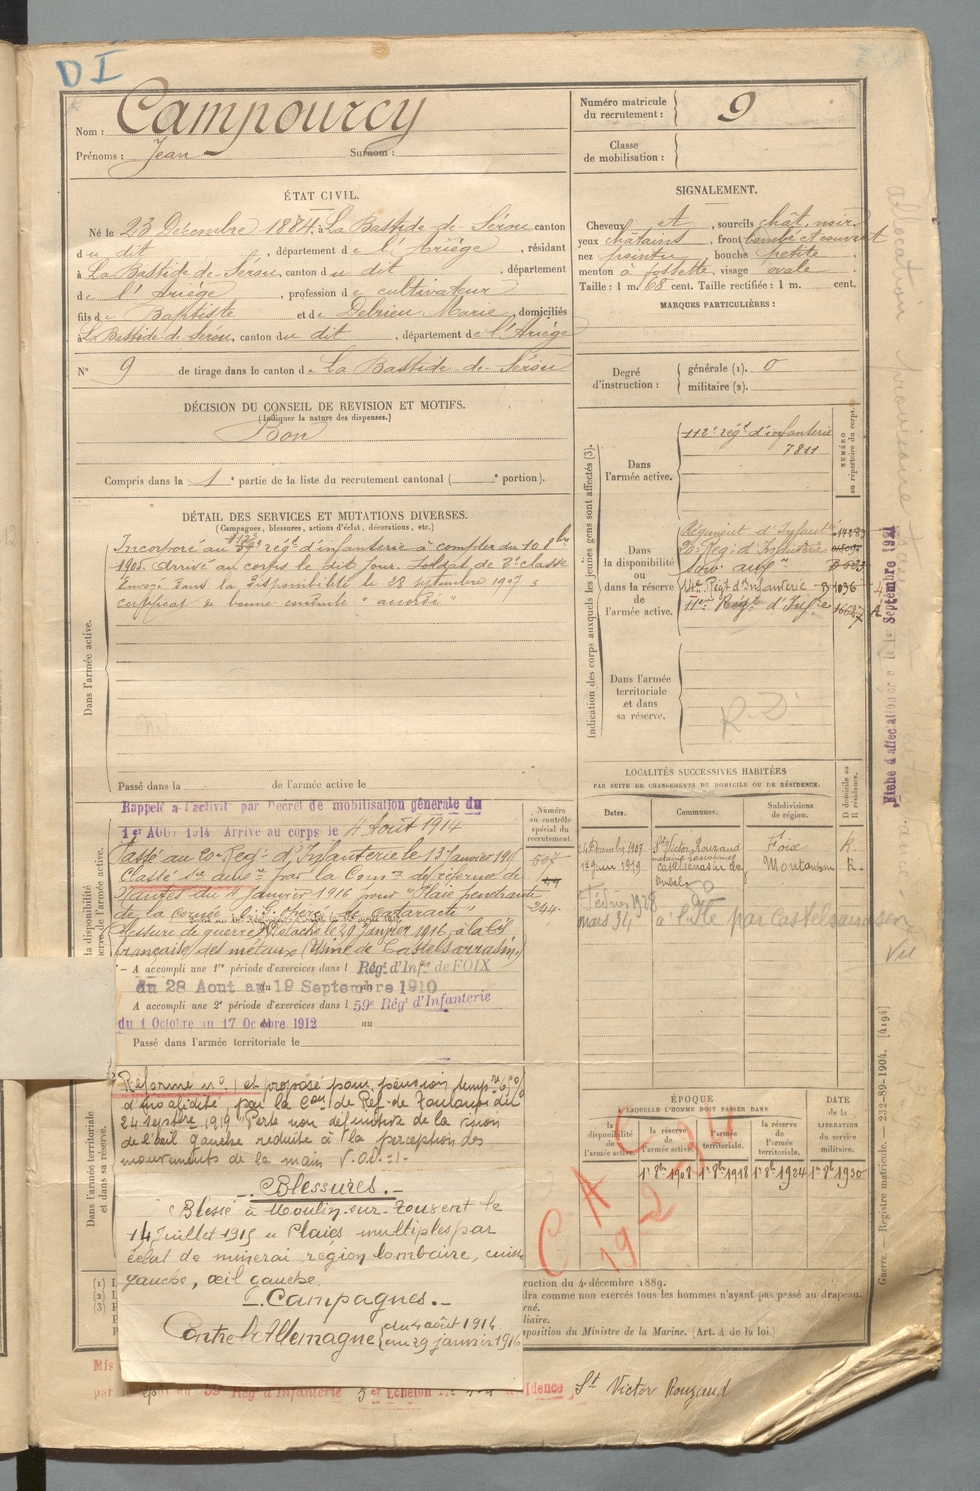 D I
Nom : Campourcy
Prénoms : Jean Surnom :
Numéro matricule du recrutement : 9
Classe de mobilisation :
ÉTAT CIVIL.
Né le 23 Décembre 1884, à La Bastide-de-Sérou canton
du dit, département de l'Ariège, résidant
à La Bastide-de-Sérou, canton du dit, département
de l'Ariège, profession de cultivateur
fils de Baptiste et de Delrieu Marie, domiciliés
à La Bastide-de-Sérou, canton du dit, département de l'Ariège
N° 9 de tirage dans le canton de La Bastide-de-Sérou
SIGNALEMENT.
Cheveux et, sourcils chât. noir
yeux châtains, front bombé et couvert
nez pointu, bouche petite
menton à fossette, visage ovale.
Taille : 1 m. 68 cent. Taille rectifiée : 1 m. cent.
MARQUES PARTICULIÈRES :
Degré d'instruction : générale (1). 0
militaire (2).
DÉCISION DU CONSEIL DE REVISION ET MOTIFS.
(Indiquer la nature des dispenses.)
Bon
Compris dans la 1e partie de la liste du recrutement cantonal ( e portion).
DÉTAIL DES SERVICES ET MUTATIONS DIVERSES.
(Campagnes, blessures, actions d'éclat, décorations, etc.)
Dans l'armée active.
Incorporé au 112e rég.t d'infanterie à compter du 10 8bre
1905. Arrivé au corps le dit jour. Soldat de 2e classe
Envoyé dans la disponibilité le 28 septembre 1907
certificat de bonne conduite "accordé"
Passé dans la de l'armée active le
Indication des corps auxquels les jeunes gens sont affectés (3).
NUMÉRO au répertoire du corps.
Dans l'armée active.
112e rég.t d'infanterie
7811
Dans la disponibilité ou dans la réserve de l'armée active.
Régiment d'Infant
20e Rég. d'Infanterie
Serv. aux
Rég.t d'Infanterie B 1036
Rég.t d'Inf.ie
Dans l'armée territoriale et dans sa réserve.
R.D
Fiche d'affectation
Septembre 1921
LOCALITÉS SUCCESSIVES HABITÉES
PAR SUITE DE CHANGEMENTS DE DOMICILE OU DE RÉSIDENCE.
Dates. Communes. Subdivisions de région. D domicile ou R résidence.
24 Décembre 1907 St Victor Rouzaud Foix R.
17 Juin 1919 Castelsarrasin Montauban R.
Février 1928
mars 34 à l'Ile par Castelsarrasin
Vu
Numéro au contrôle spécial du recrutement.
244
Rappelé à l'activité par Décret de mobilisation générale du
1er AOUT 1914 Arrivé au corps le 4 Août 1914
Passé au 20e Rég.t d'Infanterie le 13 Janvier 191
Classé S.ce aux.re par la Com.on de réforme de
Nantes du 4 Janvier 1916 pour "Plaie pénétrante
de la cornée
Blessure de guerre. Détaché le 29 Janvier 1916, à la Cie
française des métaux (Usine de Castelsarrasin)
A accompli une 1re période d'exercices dans l Rég.t d'Inf.ie de FOIX
du 28 Aout au 19 Septembre 1910
A accompli une 2e période d'exercices dans l 59e Rég.t d'Infanterie
du 1 Octobre au 17 Octobre 1912 au
Passé dans l'armée territoriale le
Dans l'armée territoriale et dans sa réserve.
Réforme n° 1 et proposé pour pension temp.re
d'invalidité, par la C.on de Réf. de Toulouse du
24 septbre 1919 "Perte non définitive de la vision
de l'œil gauche réduite à la perception des
mouvements de la main V.O.D. = 1
-. Blessures. -
Blessé à Moulin-sur-Touvent le
14 Juillet 1915 "Plaies multiples par
éclat de minerai région lombaire, cuisse
gauche, œil gauche.
-. Campagnes. -
Contre l'Allemagne du 4 août 1914
au 29 janvier 1916
ÉPOQUE
À LAQUELLE L'HOMME DOIT PASSER DANS
la disponibilité de l'armée active. la réserve de l'armée active. l'armée territoriale. la réserve de l'armée territoriale.
DATE de la LIBÉRATION du service militaire.
1er 8bre 1908 1er 8bre 1918 1er 8bre 1924 1er 8bre 1930
ruction du 4 décembre 1889.
dra comme non exercés tous les hommes n'ayant pas passé au drapeau.
rné.
liaire.
sposition du Ministre de la Marine. (Art. 4 de la loi.)
Guerre. — Registre matricule. — 232-89-1904. [4194]
Mis
par 59e Rég d'Infanterie Echelon résidence St Victor Rouzaud